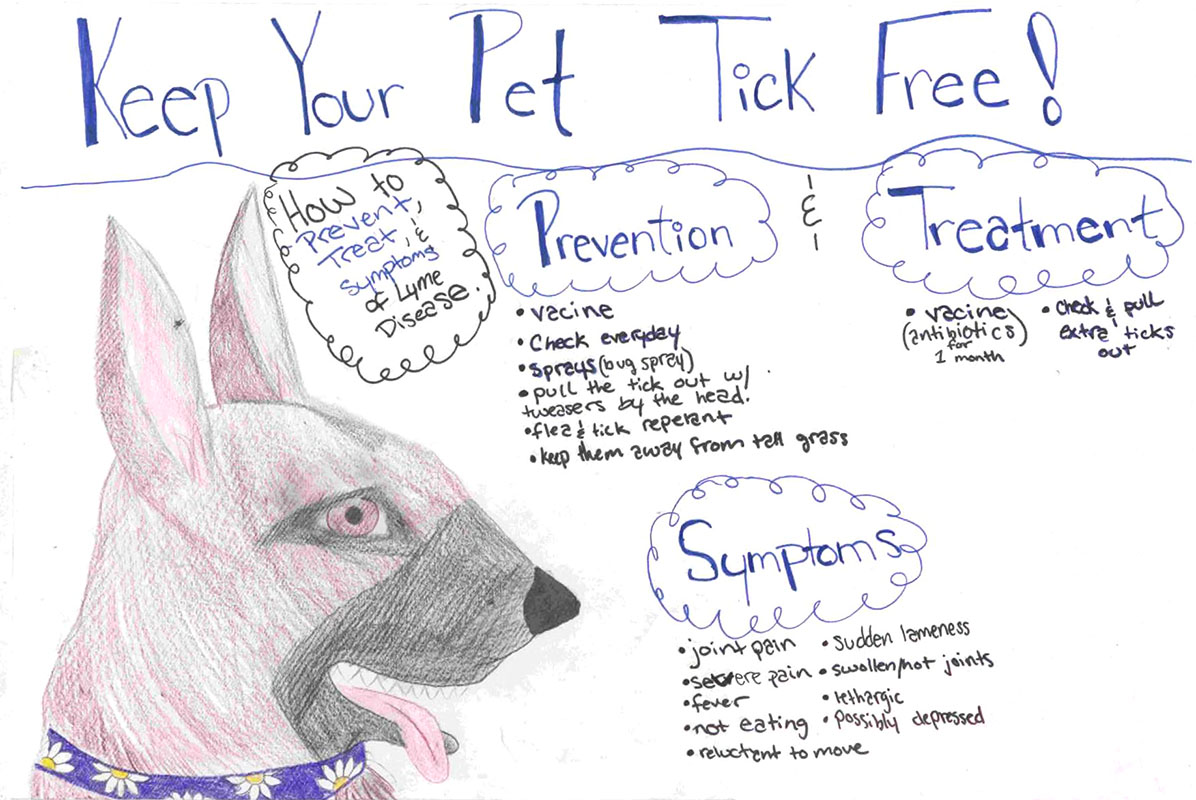 Keep Your Pet Tick Free!
How to
Prevent,
Treat, &
symptoms
of Lyme
Disease.
Prevention
• vacine
• Check everyday
• sprays (bug spray)
• pull the tick out w/
tweasers by the head.
• flea & tick reperant
• keep them away from tall grass
&
Treatment
• vacine
(antibiotics)
for
1 month
• check & pull
extra ticks
out
Symptoms
• joint pain
• severe pain
• fever
• not eating
• reluctant to move
• sudden lameness
• swollen/hot joints
• lethargic
• possibly depressed